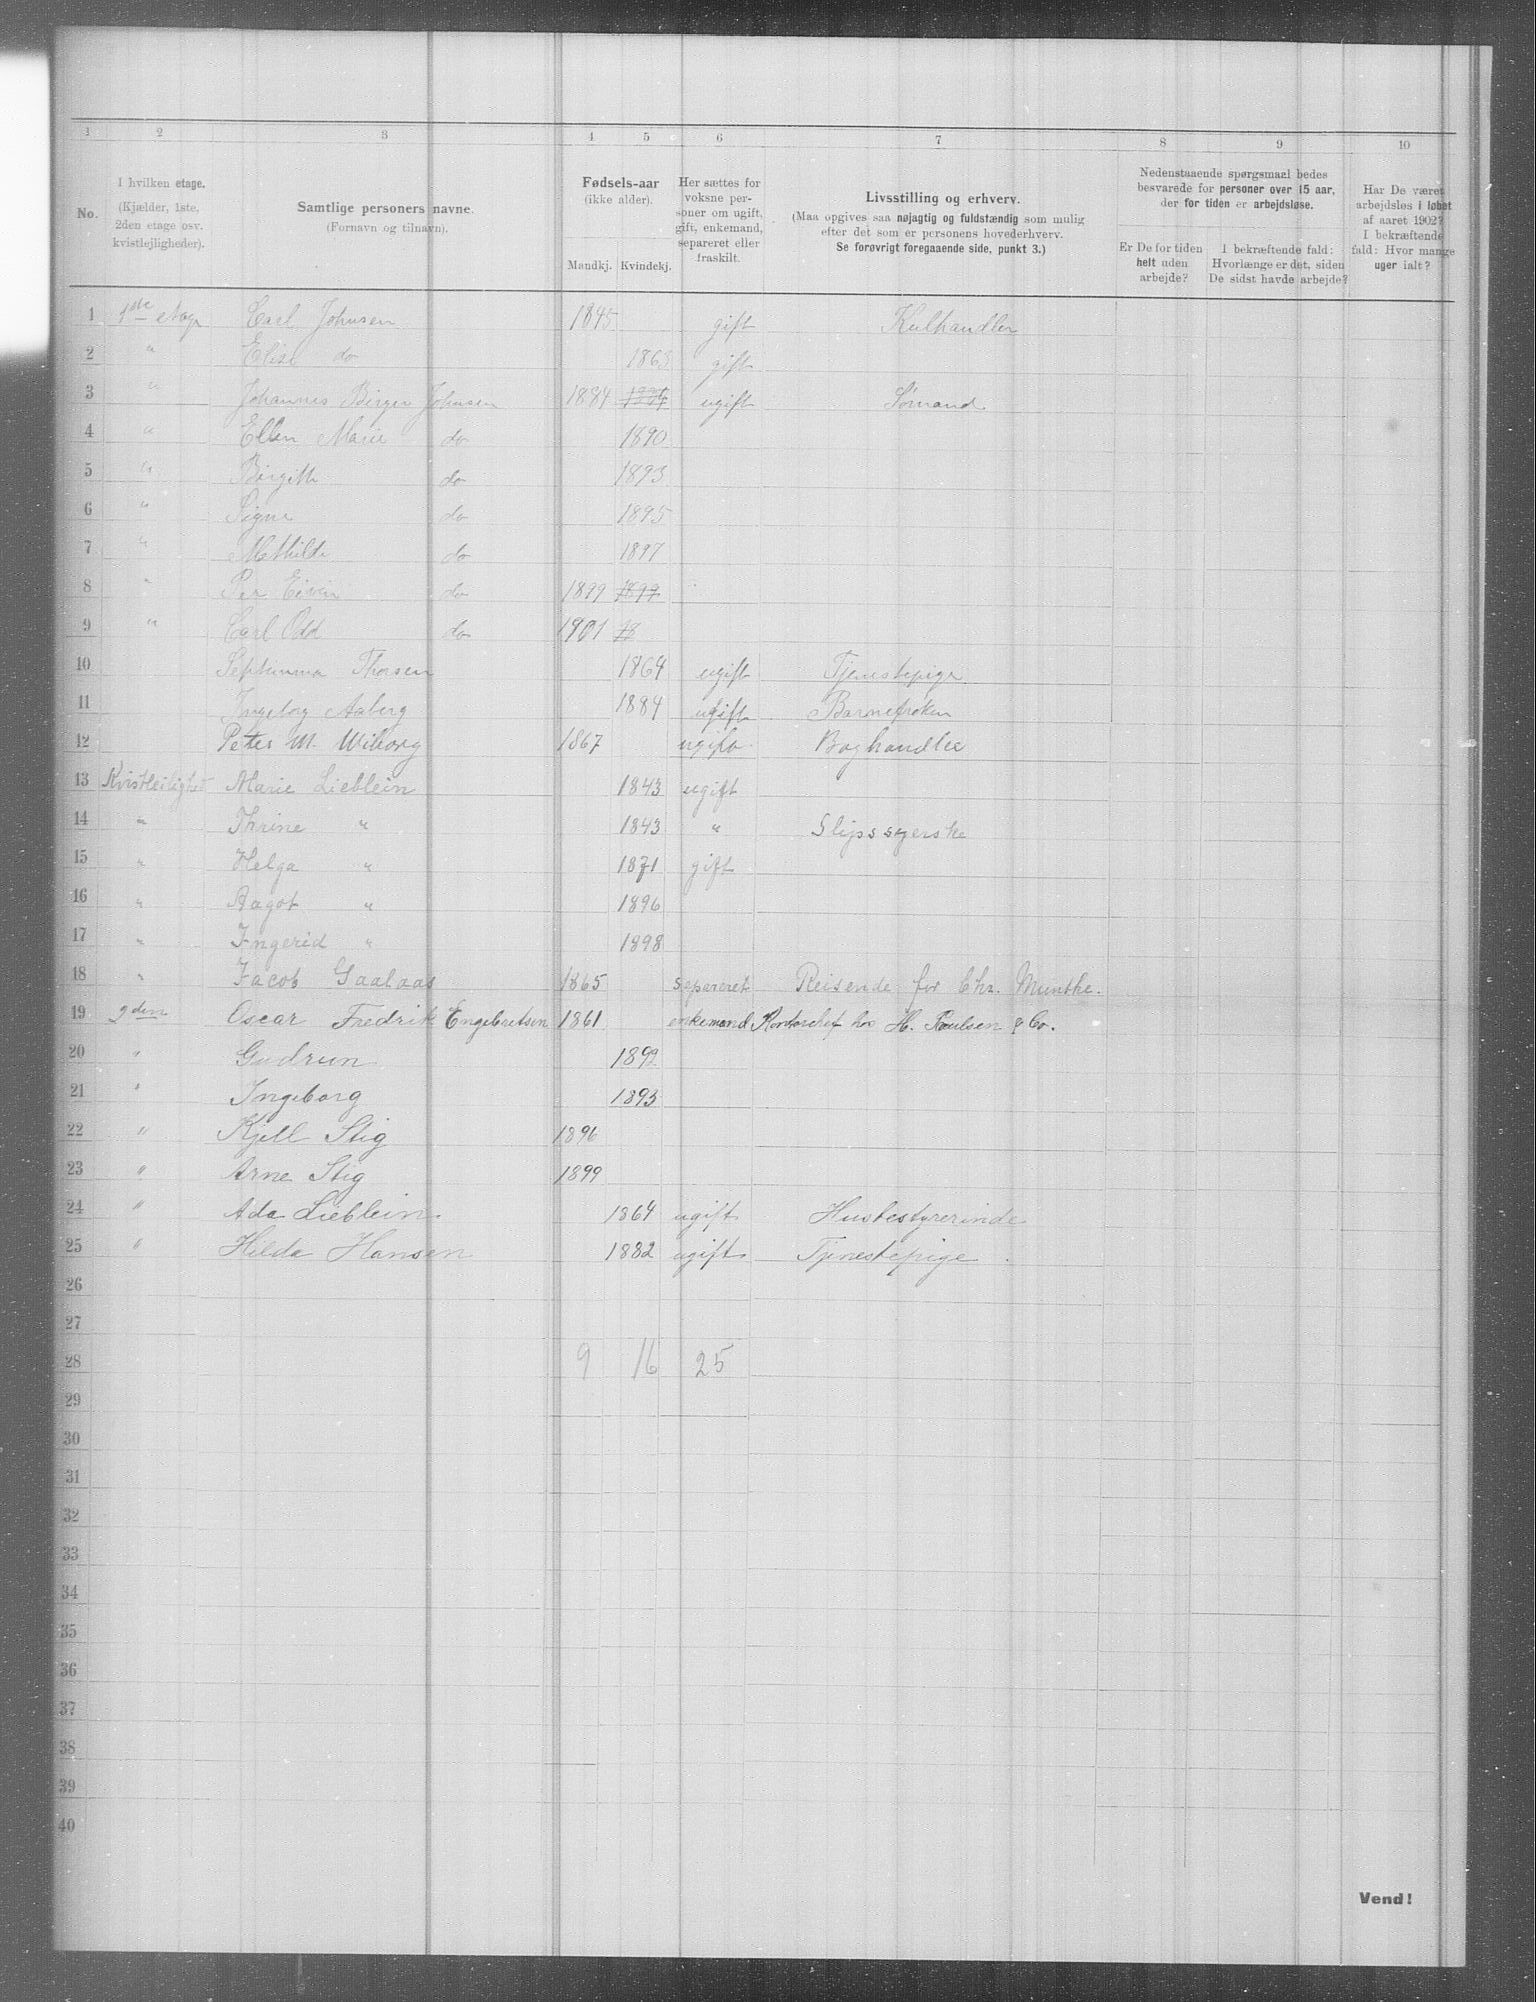 1 2 3 4 5 6 7 8 9 10
No. I hvilken etage. (Kjælder, 1ste, 2den etage osv. kvistlejligheder). Samtlige personers navne. (Fornavn og tilnavn). Fødsels-aar (ikke alder). Mandkj. Kvindekj. Her sættes for voksne per-soner om ugift, gift, enkemand, separeret eller fraskilt. Livsstilling og erhverv. (Maa opgives saa nøjagtig og fuldstændig som mulig efter det som er personens hovederhverv. Se forøvrigt foregaaende side, punkt 3.) Nedenstaaende spørgsmaal bedes besvarede for personer over 15 aar, der for tiden er arbejdsløse. Er De for tiden helt uden arbejde? I bekræftende fald: Hvorlænge er det, siden De sidst havde arbejde? Har De været arbejdsløs i løbet af aaret 1902? I bekræftende fald: Hvor mange uger ialt?
1 1ste etage Carl Johnsen 1845 gift Kulhandler
2 " Elise do 1863 gift
3 " Johannes Birger Johnsen 1884 1884 ugift Sømand
4 " Ellen Marie do 1890
5 " Birgith do 1893
6 " Signe do 1895
7 " Mathilde do 1897
8 " Per Eivin do 1899 1899
9 " Carl Odd do 1901 18
10 Septimma Thorsen 1864 ugift Tjenestepige
11 Ingeborg Aaberg 1884 ugift Barnefrøken
12 Petter M. Wiborg 1867 ugift Boghandler
13 Kvistleilighet Marie Lieblein 1843 ugift
14 " Thrine " 1843 " Slipssyerske
15 " Helga " 1871 gift
16 " Aagot " 1896
17 " Ingerid " 1898
18 " Jacob Gaalaas 1865 separeret Reisende for Chr. Munthe.
19 2den Oscar Fredrik Engebretsen 1861 enkemand Kontorchef hos H. Poulsen & Co.
20 " Gudrun 1892
21 " Ingeborg 1893
22 " Kjell Stig 1896
23 " Arne Stig 1899
24 " Ada Lieblein 1864 ugift Husbestyrerinde
25 " Hilda Hansen 1882 ugift Tjenestepige
26
27
28 9 16 25
29
30
31
32
33
34
35
36
37
38
39
40
Vend!